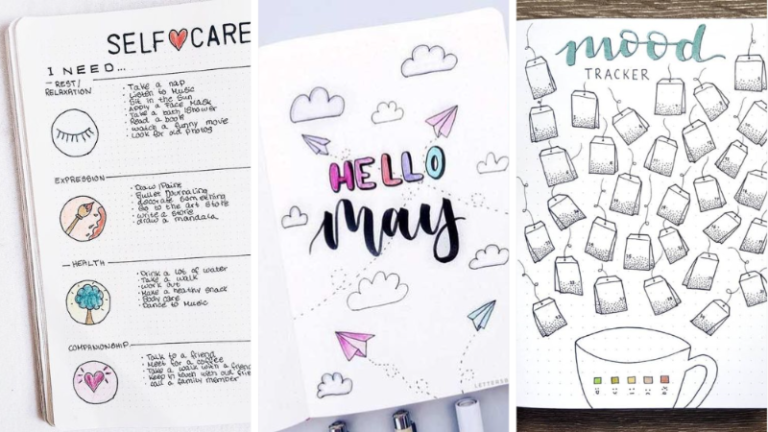 SELF CARE
I NEED...
REST/
RELAXATION
• Take a nap
• Listen to Music
• Sit in the Sun
• Apply a Face Mask
• Take a bath/shower
• Read a book
• Watch a funny movie
• Look for old photos
EXPRESSION
• Draw/Paint
• Bullet Journaling
• decorate something
• Go to the art store
• write a
• draw a mandala
HEALTH
• Drink a lot of water
• Take a walk
• Work out
• Make a healthy snack
• Body care
• Dance to Music
COMPANIONSHIP
• Talk to a friend
• Meet for a coffee
• Take a walk with a friend
• Keep in touch with old
• Call a family member
HELLO
may
mood
TRACKER